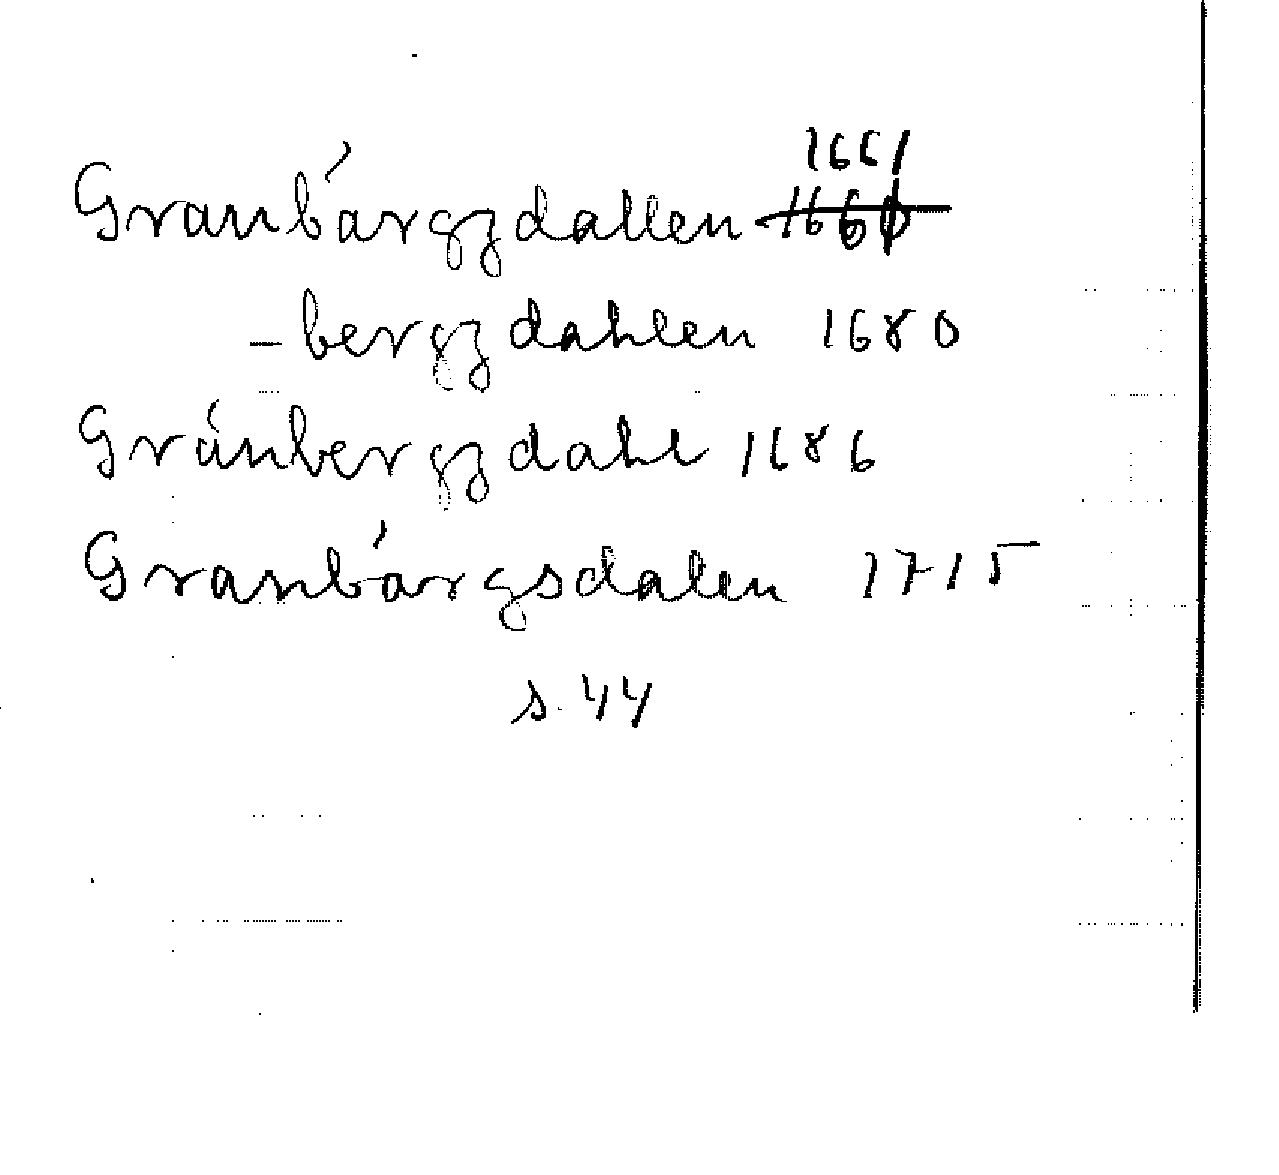 1661
Granbárgzdallen 1660
-bergzdahlen 1680
Gránbergzdahl 1686
Granbárgsdalen 1715
s. 44